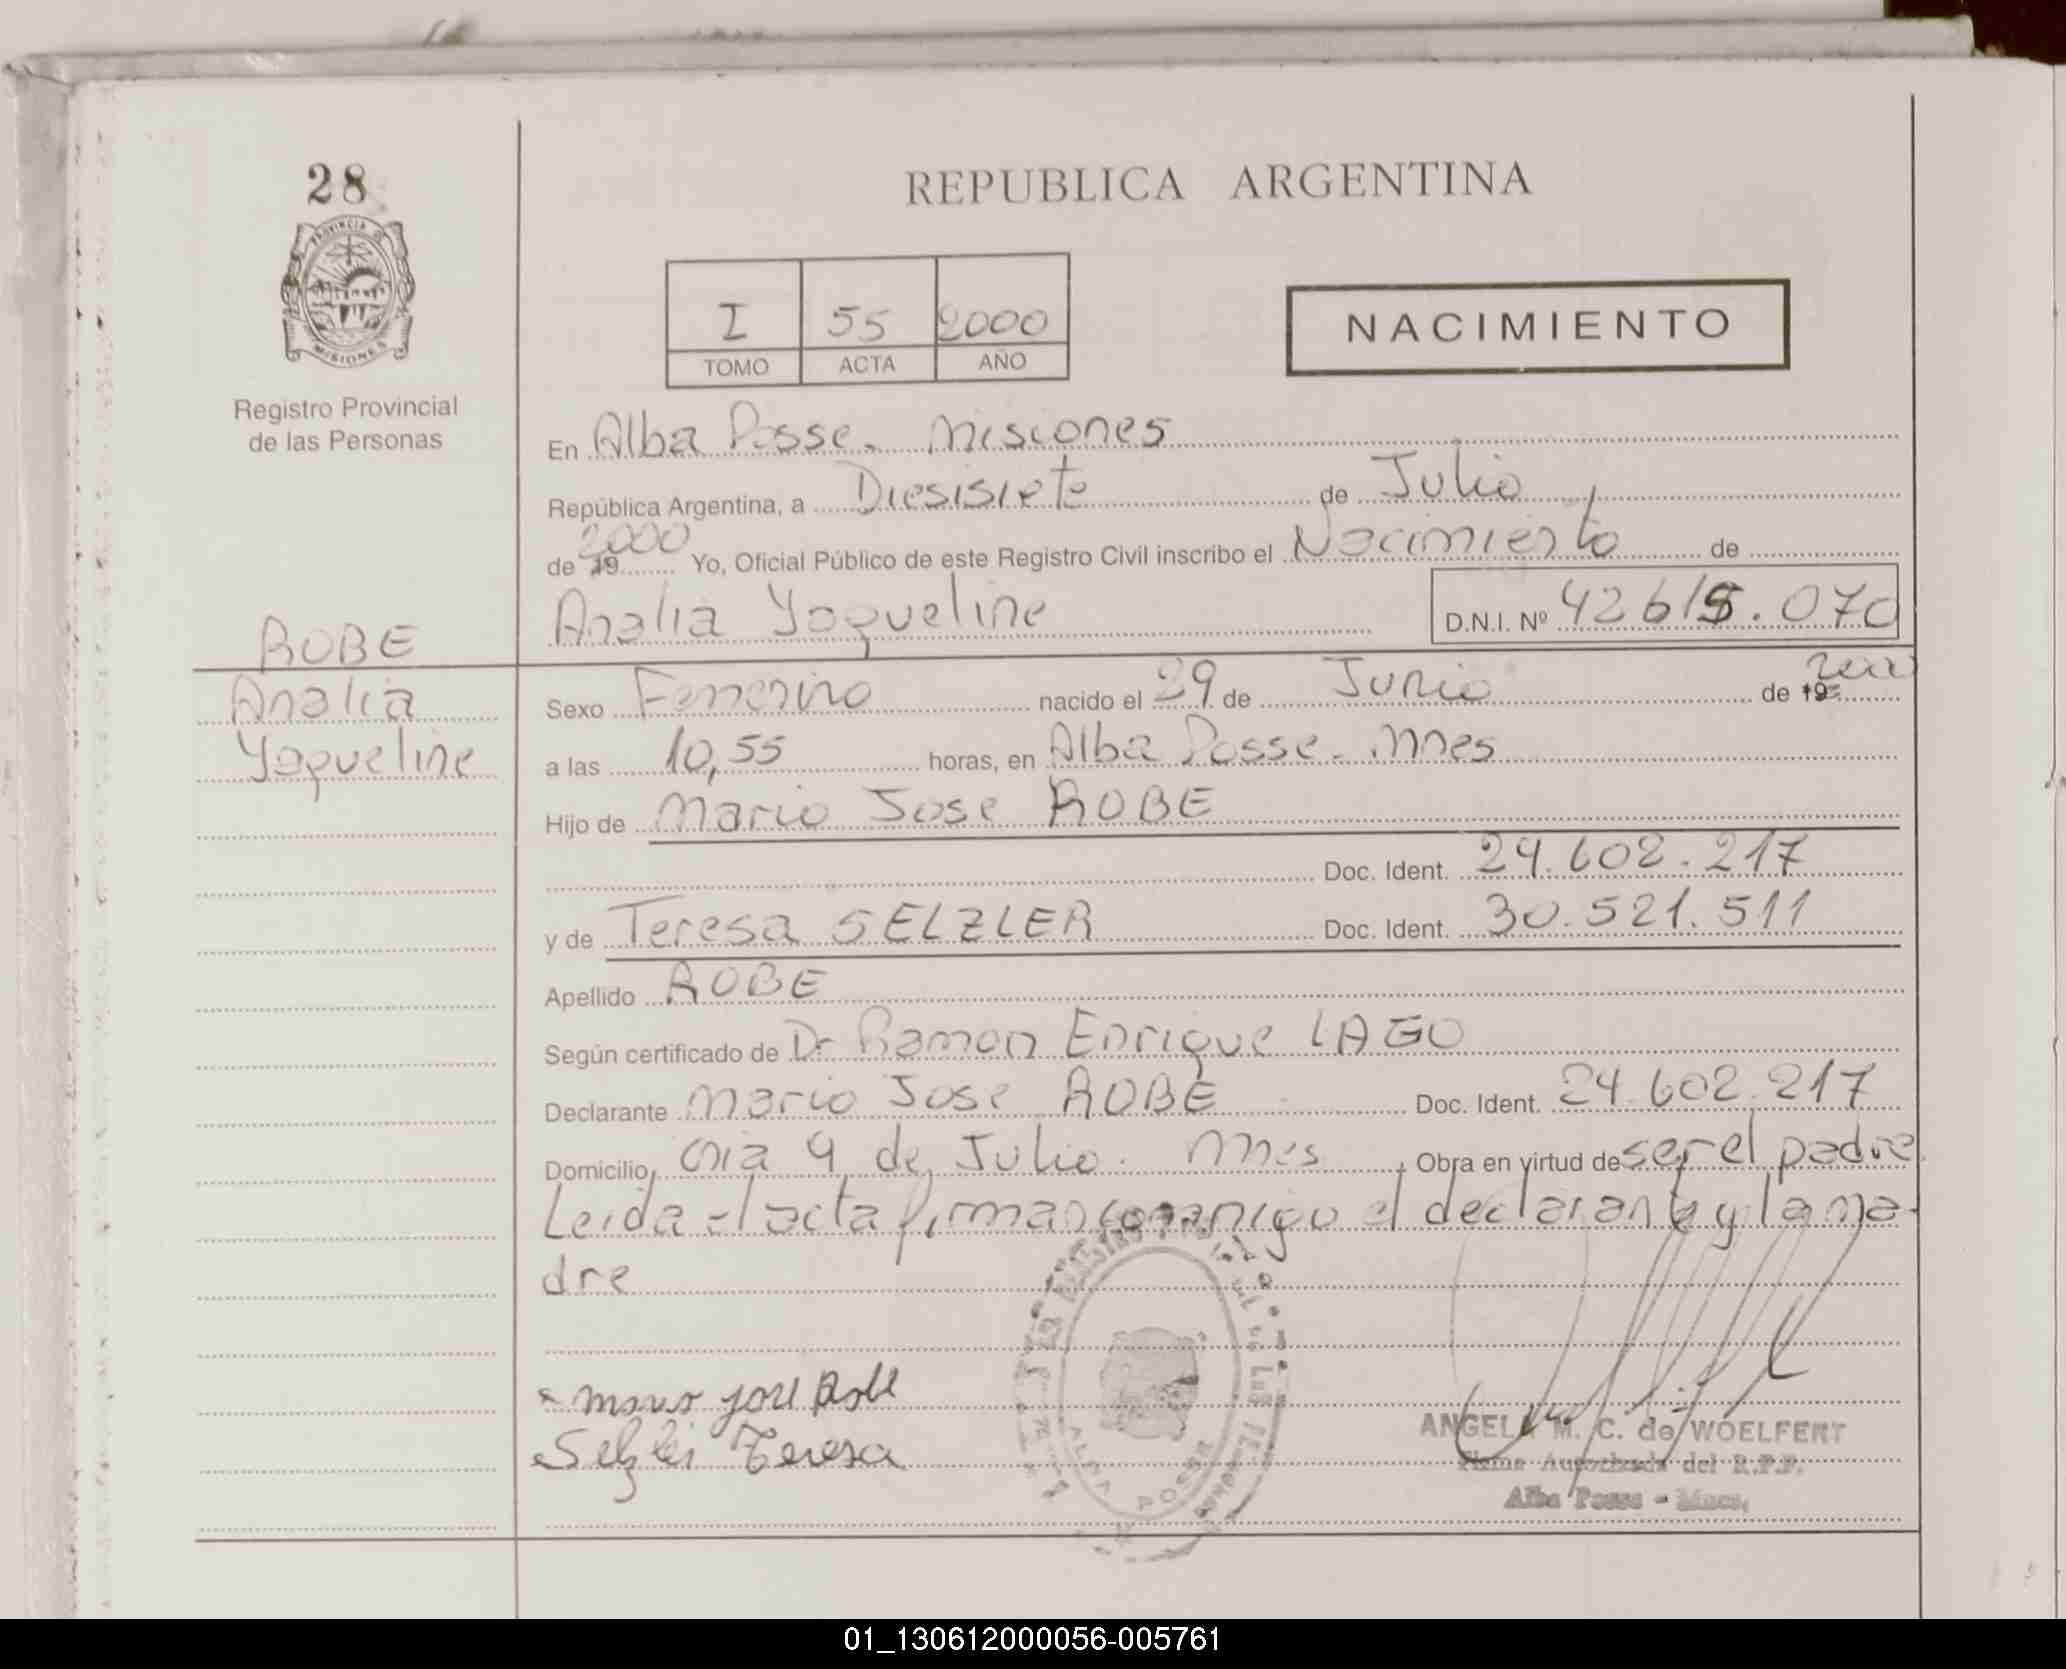 28
PROVINCIA DE
MISIONES
Registro Provincial
de las Personas
REPUBLICA ARGENTINA
I 55 2000
TOMO ACTA AÑO
NACIMIENTO
En Alba Posse. Misiones
República Argentina, a Diesisiete de Julio
de 19 2000 Yo, Oficial Público de este Registro Civil inscribo el Nacimiento de
Analia Yaqueline D.N.I. Nº 42615.070
ROBE
Analia
Yaqueline
Sexo Femenino nacido el 29 de Junio de 19 2000
a las 10,55 horas, en Alba Posse. Mnes
Hijo de Mario Jose ROBE
Doc. Ident. 24.602.217
y de Teresa SELZLER Doc. Ident. 30.521.511
Apellido ROBE
Según certificado de Dr Ramon Enrique LAGO
Declarante Mario Jose ROBE Doc. Ident. 24.602.217
Domicilio, 9 de Julio. Mnes Obra en virtud de ser el padre
Leida el acta firman conmigo el declarante y la ma-
dre
Jose Robe
Teresa
ALBA POSSE
ANGELA M. C. de WOELFERT
Firma Autorizada del R.P.P.
Alba Posse - Mnes.
01_130612000056-005761